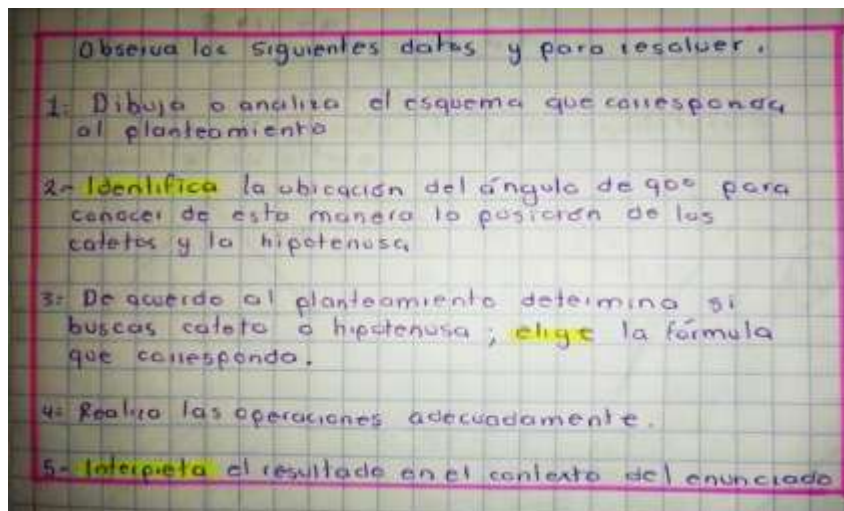 Observa los siguientes datos y para resolver.
1- Dibuja o analiza el esquema que corresponda
al planteamiento
2- Identifica la ubicación del ángulo de 90° para
conocer de esta manera la posición de los
catetos y la hipotenusa
3- De acuerdo al planteamiento determina si
buscas cateto o hipotenusa; elige la fórmula
que corresponda.
4- Realiza las operaciones adecuadamente.
5- Interpreta el resultado en el contexto del enunciado